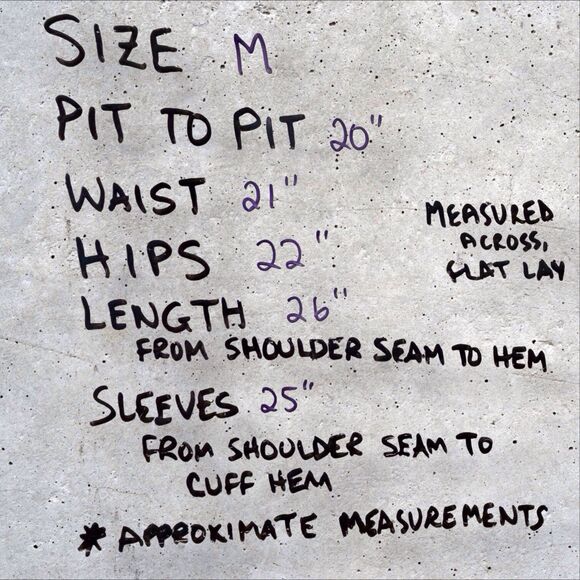 SIZE M
PIT TO PIT 20"
WAIST 21"
MEASURED
ACROSS,
FLAT LAY
HIPS 22"
LENGTH 26"
FROM SHOULDER SEAM TO HEM
SLEEVES 25"
FROM SHOULDER SEAM TO
CUFF HEM
* APPROXIMATE MEASUREMENTS